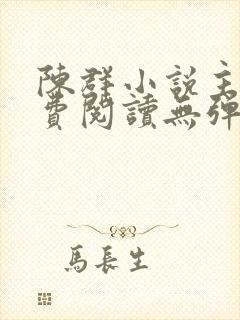 陳群小説主
費閱讀無彈
馬長生